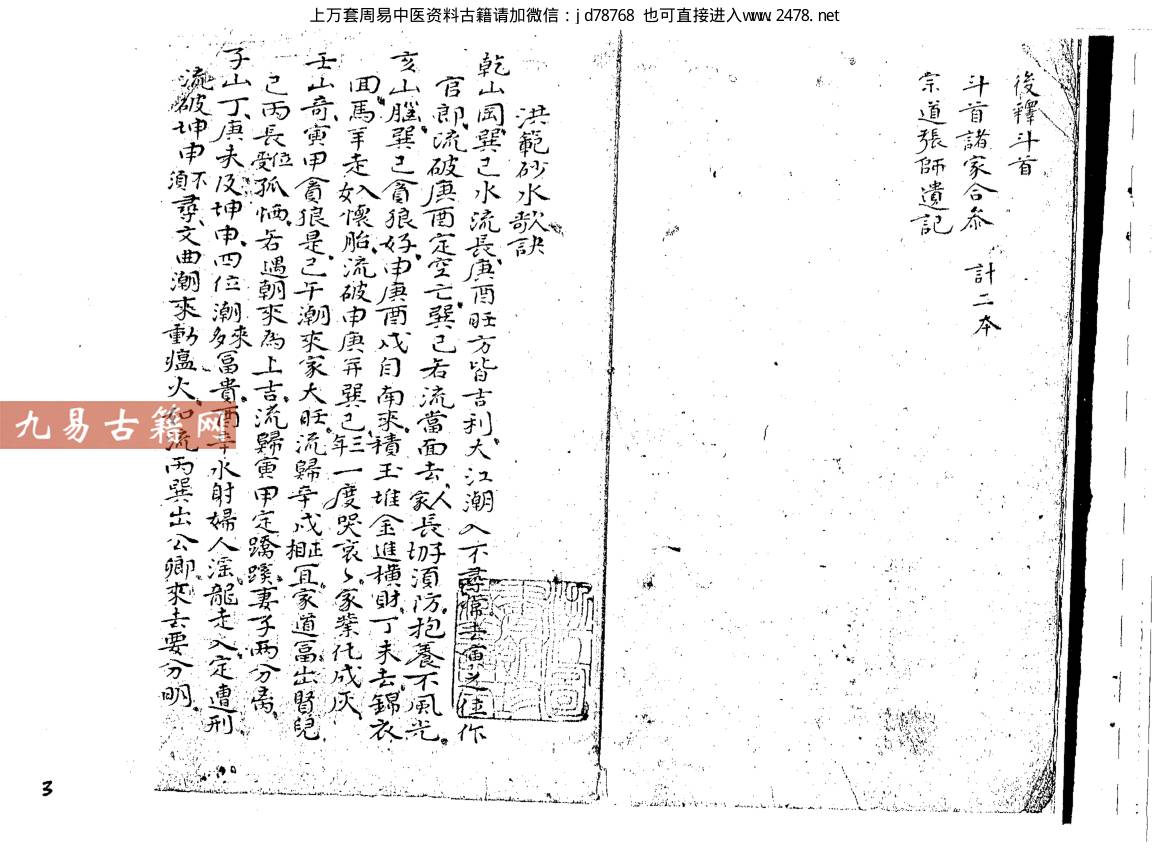 上万套周易中医资料古籍请加微信：jd78768 也可直接进入www.2478.net
後釋斗首
斗首諸家合參 計二本
宗道張師遺記
洪範砂水歌訣
乾山岡巽巳水流長庚酉旺方皆吉利大江潮入不尋常去寅之位作
官郎流破庚酉定空亡巽巳若流當面去家人長切子須防抱養不風光
亥山臛巽巳貪狼好申庚酉戌自南來積玉堆金進橫財丁未去錦衣
回馬羊走入女懷胎流破申庚並巽巳三年一度哭哀哀家業化成灰
壬山奇寅甲貪狼是巳午潮來家大旺流歸辛戌正相宜家道富出賢兒
巳丙長位受孤恓若遇朝來為上吉流歸寅甲定蹺蹊妻子兩分离
子山丁庚未及坤申四位潮來多富貴酉辛水射婦人淫龍走入定遭刑
流破坤申不須尋文曲潮來動瘟火如流丙巽出公卿來去要分明
九易古籍网
3